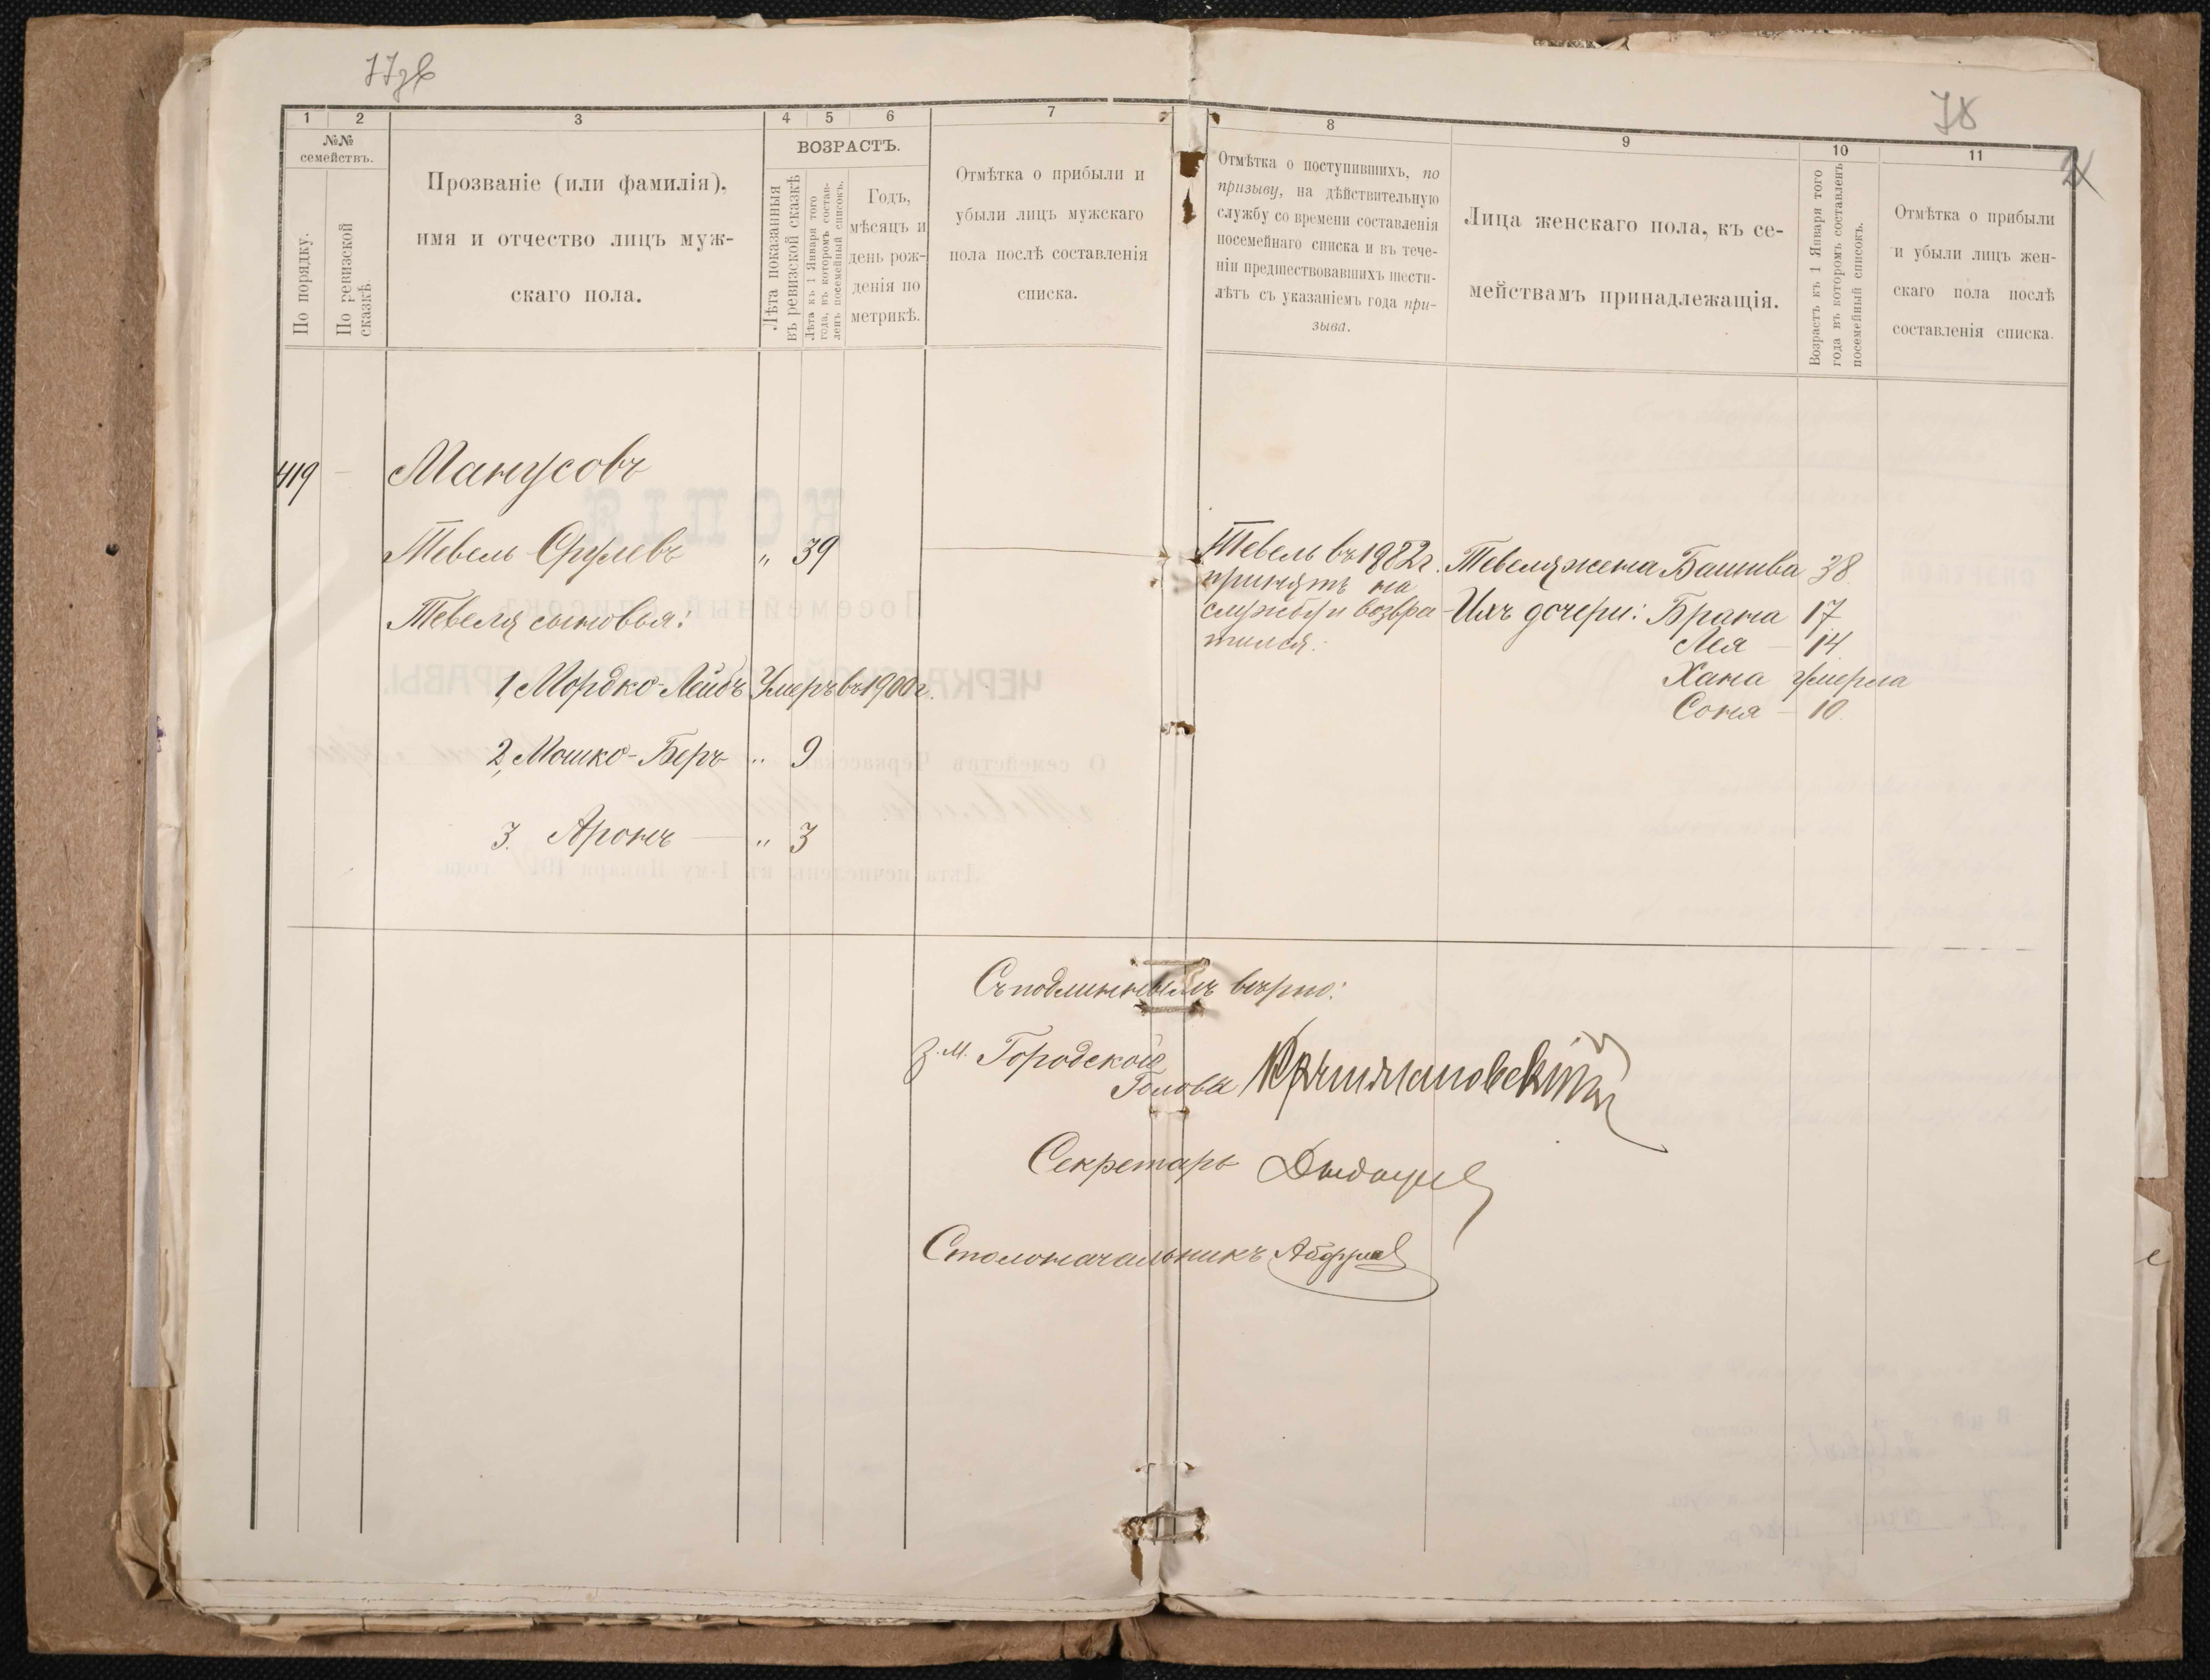 77зв
78
1 2 3 4 5 6 7
№№ семействъ.
По порядку.
По ревизской сказкѣ.
Прозваніе (или фамилія),
имя и отчество лицъ муж-
скаго пола.
ВОЗРАСТЪ.
Лѣта показанныя
въ ревизской сказкѣ
Лѣта къ 1 Января того
года, въ которомъ состав-
ленъ посемейный списокъ.
Годъ,
мѣсяцъ и
день рож-
денія по
метрикѣ.
Отмѣтка о прибыли и
убыли лицъ мужскаго
пола послѣ составленія
списка.
8 9 10 11
Отмѣтка о поступившихъ, по
призыву, на дѣйствительную
службу со времени составленія
посемейнаго списка и въ тече-
ніи предшествовавшихъ шести-
лѣтъ съ указаніемъ года при-
зыва.
Лица женскаго пола, къ се-
мействамъ принадлежащія.
Возрастъ къ 1 Января того
года въ которомъ составленъ
посемейный списокъ.
Отмѣтка о прибыли
и убыли лицъ жен-
скаго пола послѣ
составленія списка.
419 — Манусовъ
Тевель Срулевъ „ 39
Тевеля сыновья:
1, Мордко-Лейбъ Умеръ въ 1900 г.
2, Мошко-Беръ „ 9
3. Аронъ — „ 3
Тевель въ 1882 г.
принятъ на
службу и возвра-
тился.
Тевеля жена Башива 38
Ихъ дочери: Брана 17
Лея — 14
Хана умерла
Соня — 10.
Съ подлиннымъ вѣрно:
З.М. Городской
Голова
Секретарь
Столоначальникъ